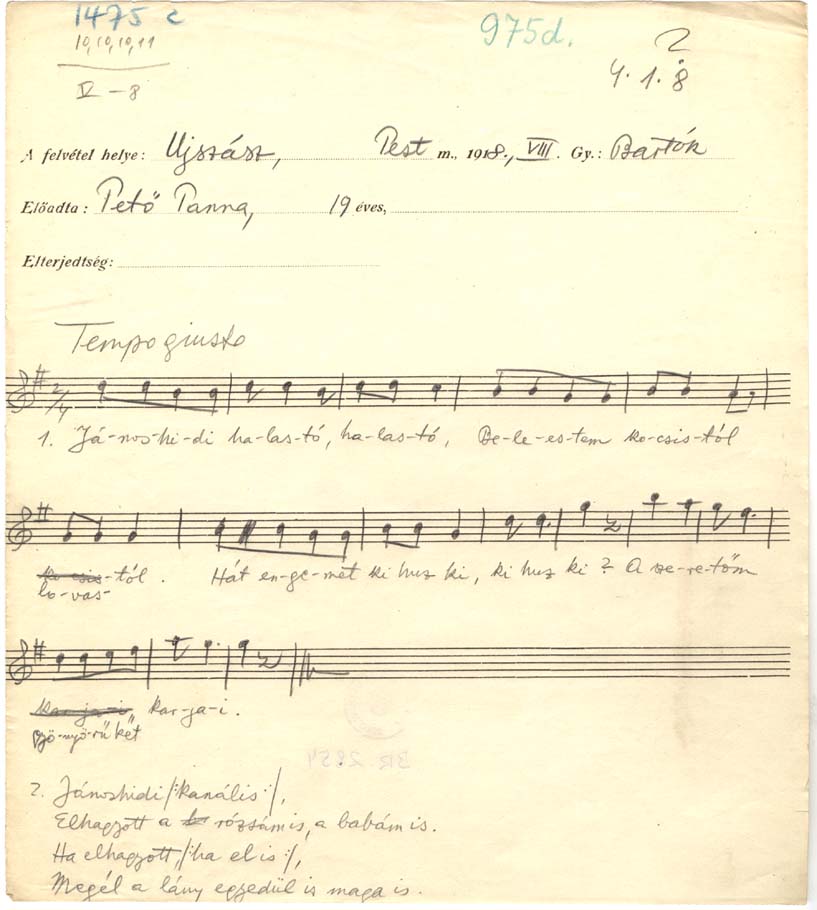 1475 c
975d.
2
10,10,10,11
V – 8
4.1.8
A felvétel helye: Ujszász, Pest m., 1918., VIII. Gy.: Bartók
Előadta: Pető Panna, 19 éves,
Elterjedtség:
Tempo giusto
2/4
1. Já-nos-hi-di ha-las-tó, ha-las-tó, Be-le-es-tem ko-csis-tól
ko-csis-tól. Hát en-ge-met ki huz ki, ki huz ki? A sze-re-tőm
lo-vas-
kar-ja-i, kar-ja-i.
gyö-nyö-rű két
BR 2851
2. Jánoshidi /:kanális:/,
Elhagyott a rózsám is, a babám is.
Ha elhagyott, /:ha el is:/,
Megél a lány egyedül is maga is.